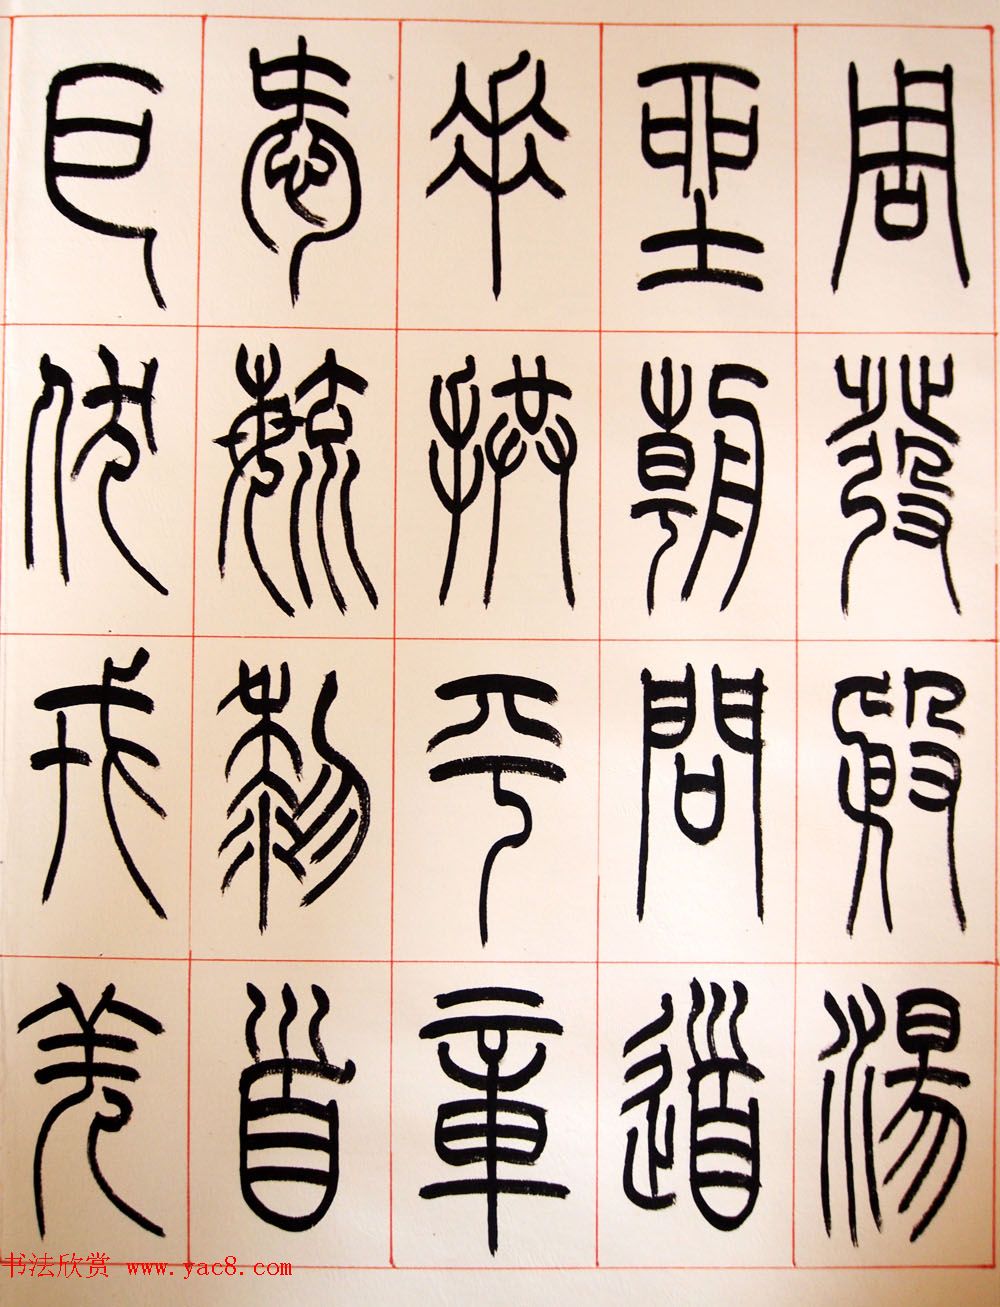 周發殷湯
坐朝問道
垂拱平章
愛毓黎首
臣伏戎羌
书法欣赏 www.yac8.com